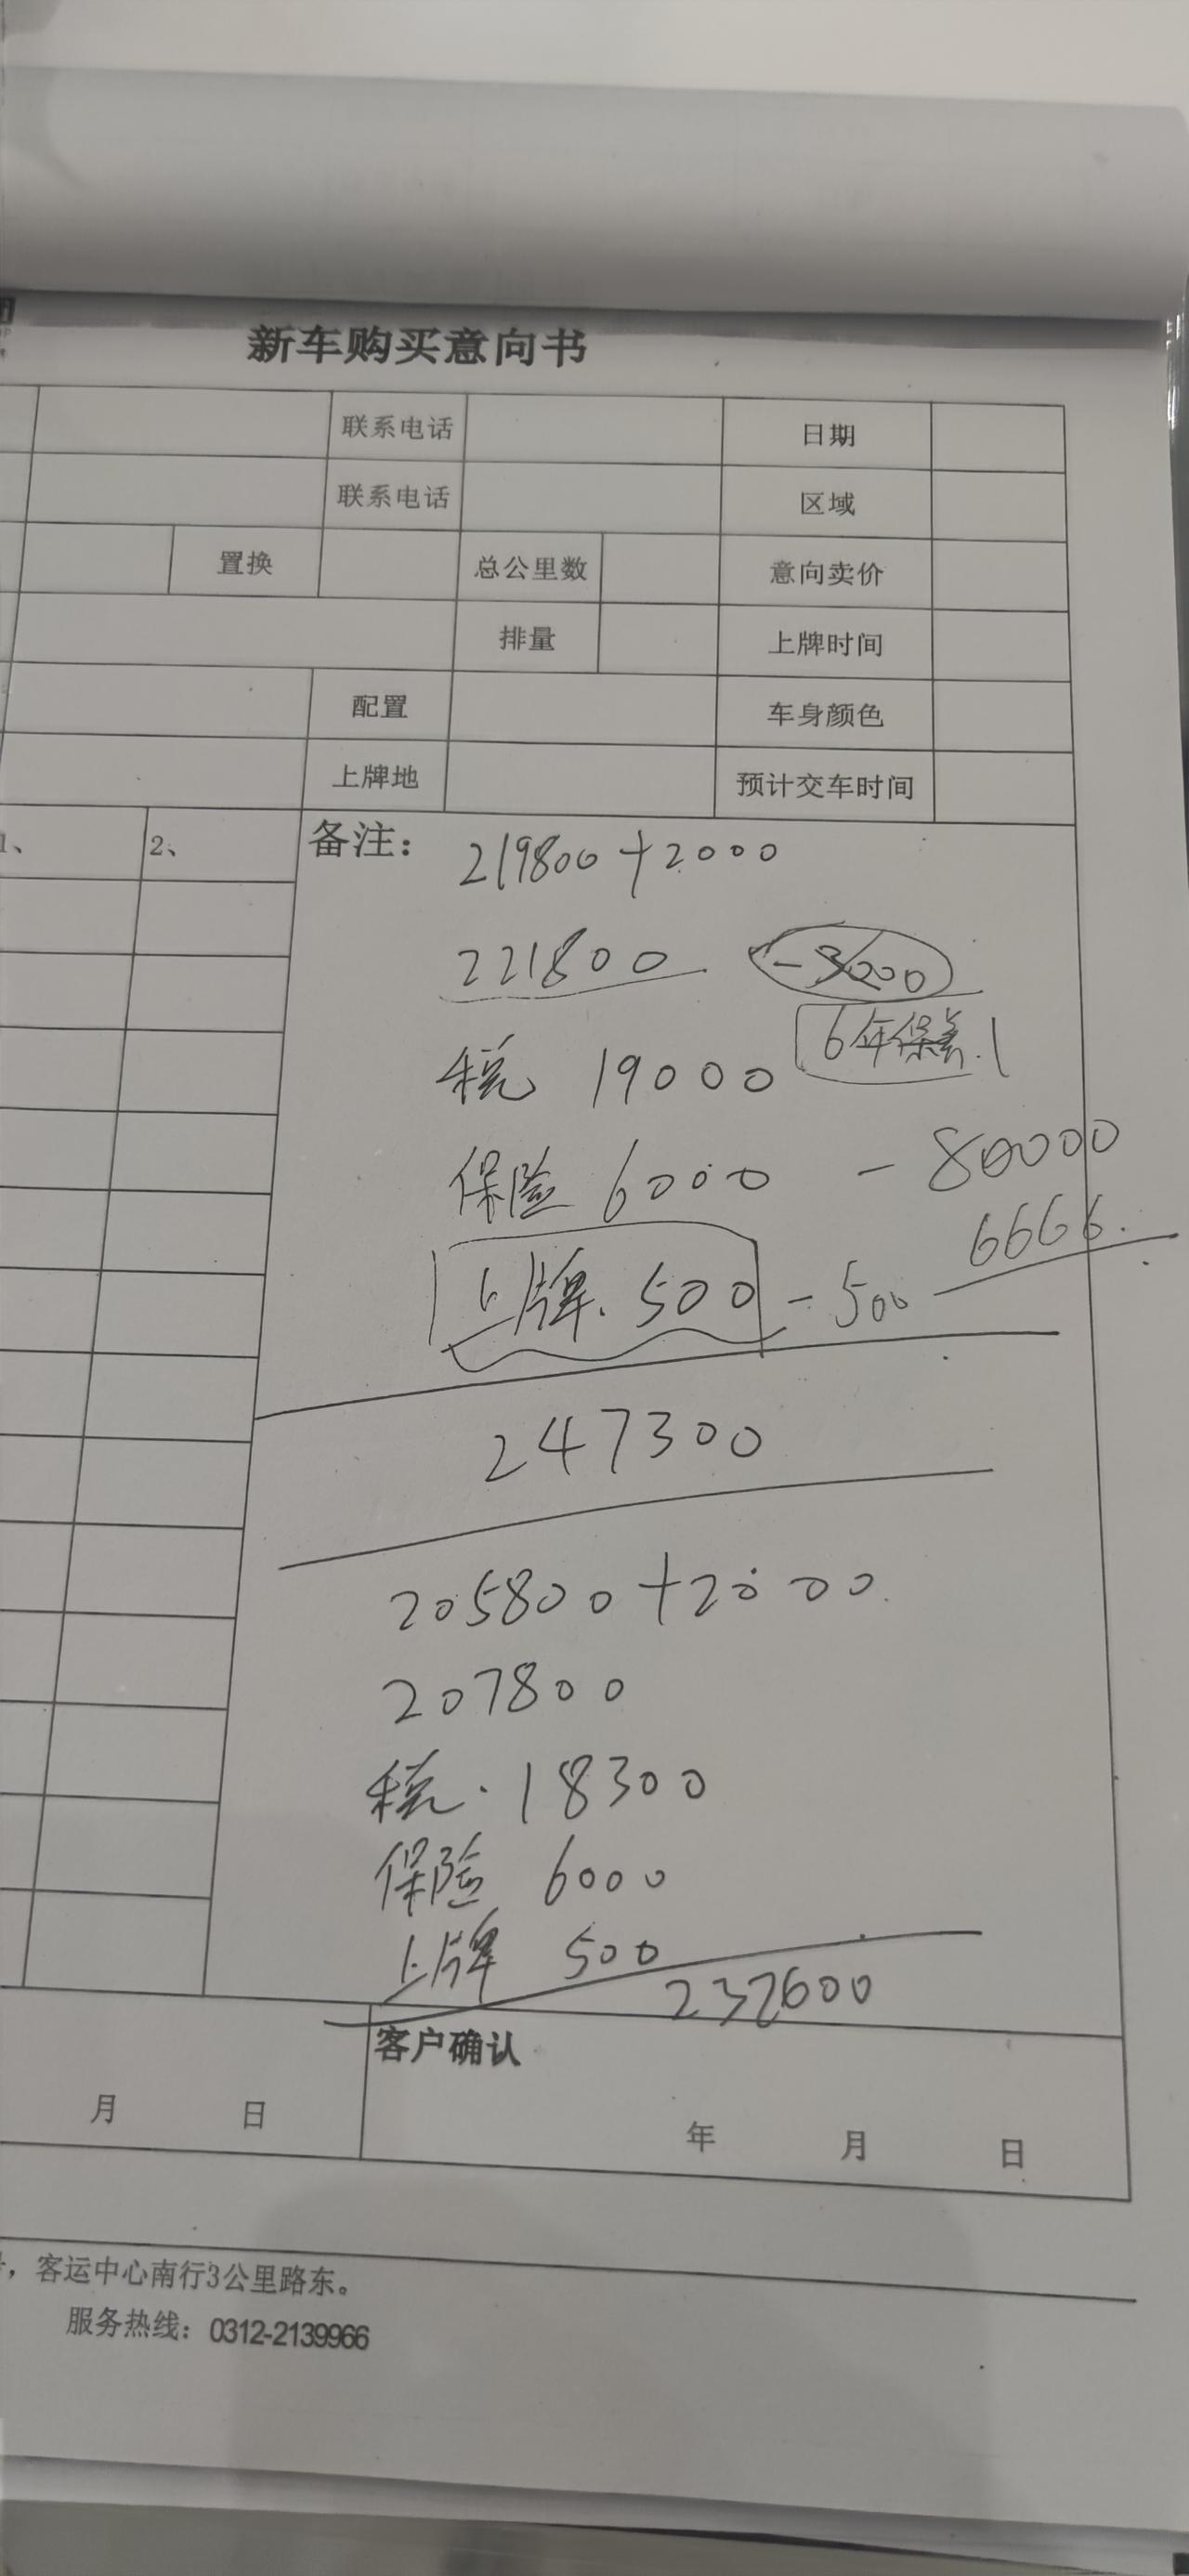 新车购买意向书
联系电话 日期
联系电话 区域
置换 总公里数 意向卖价
排量 上牌时间
配置 车身颜色
上牌地 预计交车时间
1、 2、 备注：
219800+2000
221800 -3000
6年保养
税 19000
保险 6000 -80000
6666.
上牌. 500 -500
247300
205800+2000
207800
税.18300
保险 6000
上牌 500
232600
客户确认
月 日 年 月 日
，客运中心南行3公里路东。
服务热线：0312-2139966